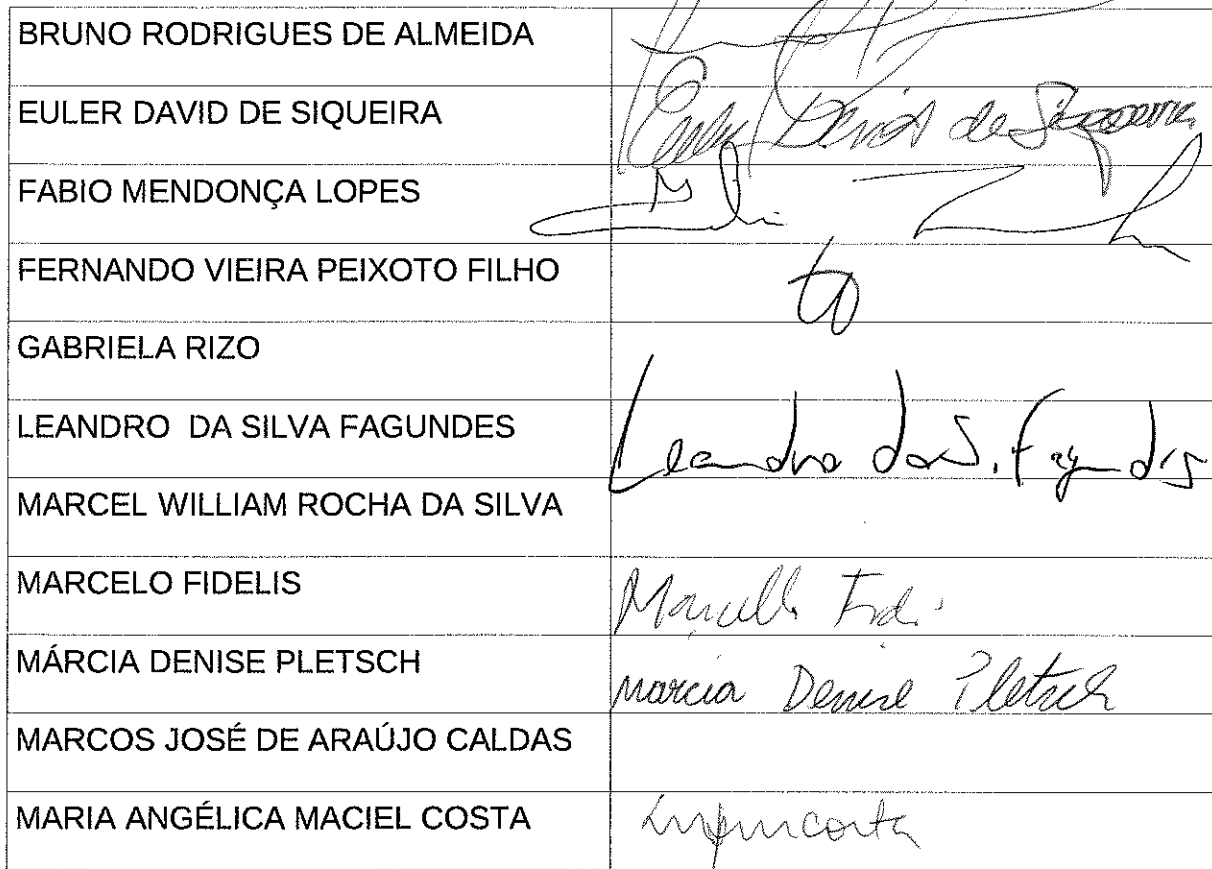 BRUNO RODRIGUES DE ALMEIDA
EULER DAVID DE SIQUEIRA Euler David de Siqueira
FABIO MENDONÇA LOPES
FERNANDO VIEIRA PEIXOTO FILHO
GABRIELA RIZO
LEANDRO DA SILVA FAGUNDES Leandro da S. Fagundes
MARCEL WILLIAM ROCHA DA SILVA
MARCELO FIDELIS
MÁRCIA DENISE PLETSCH Marcia Denise Pletsch
MARCOS JOSÉ DE ARAÚJO CALDAS
MARIA ANGÉLICA MACIEL COSTA